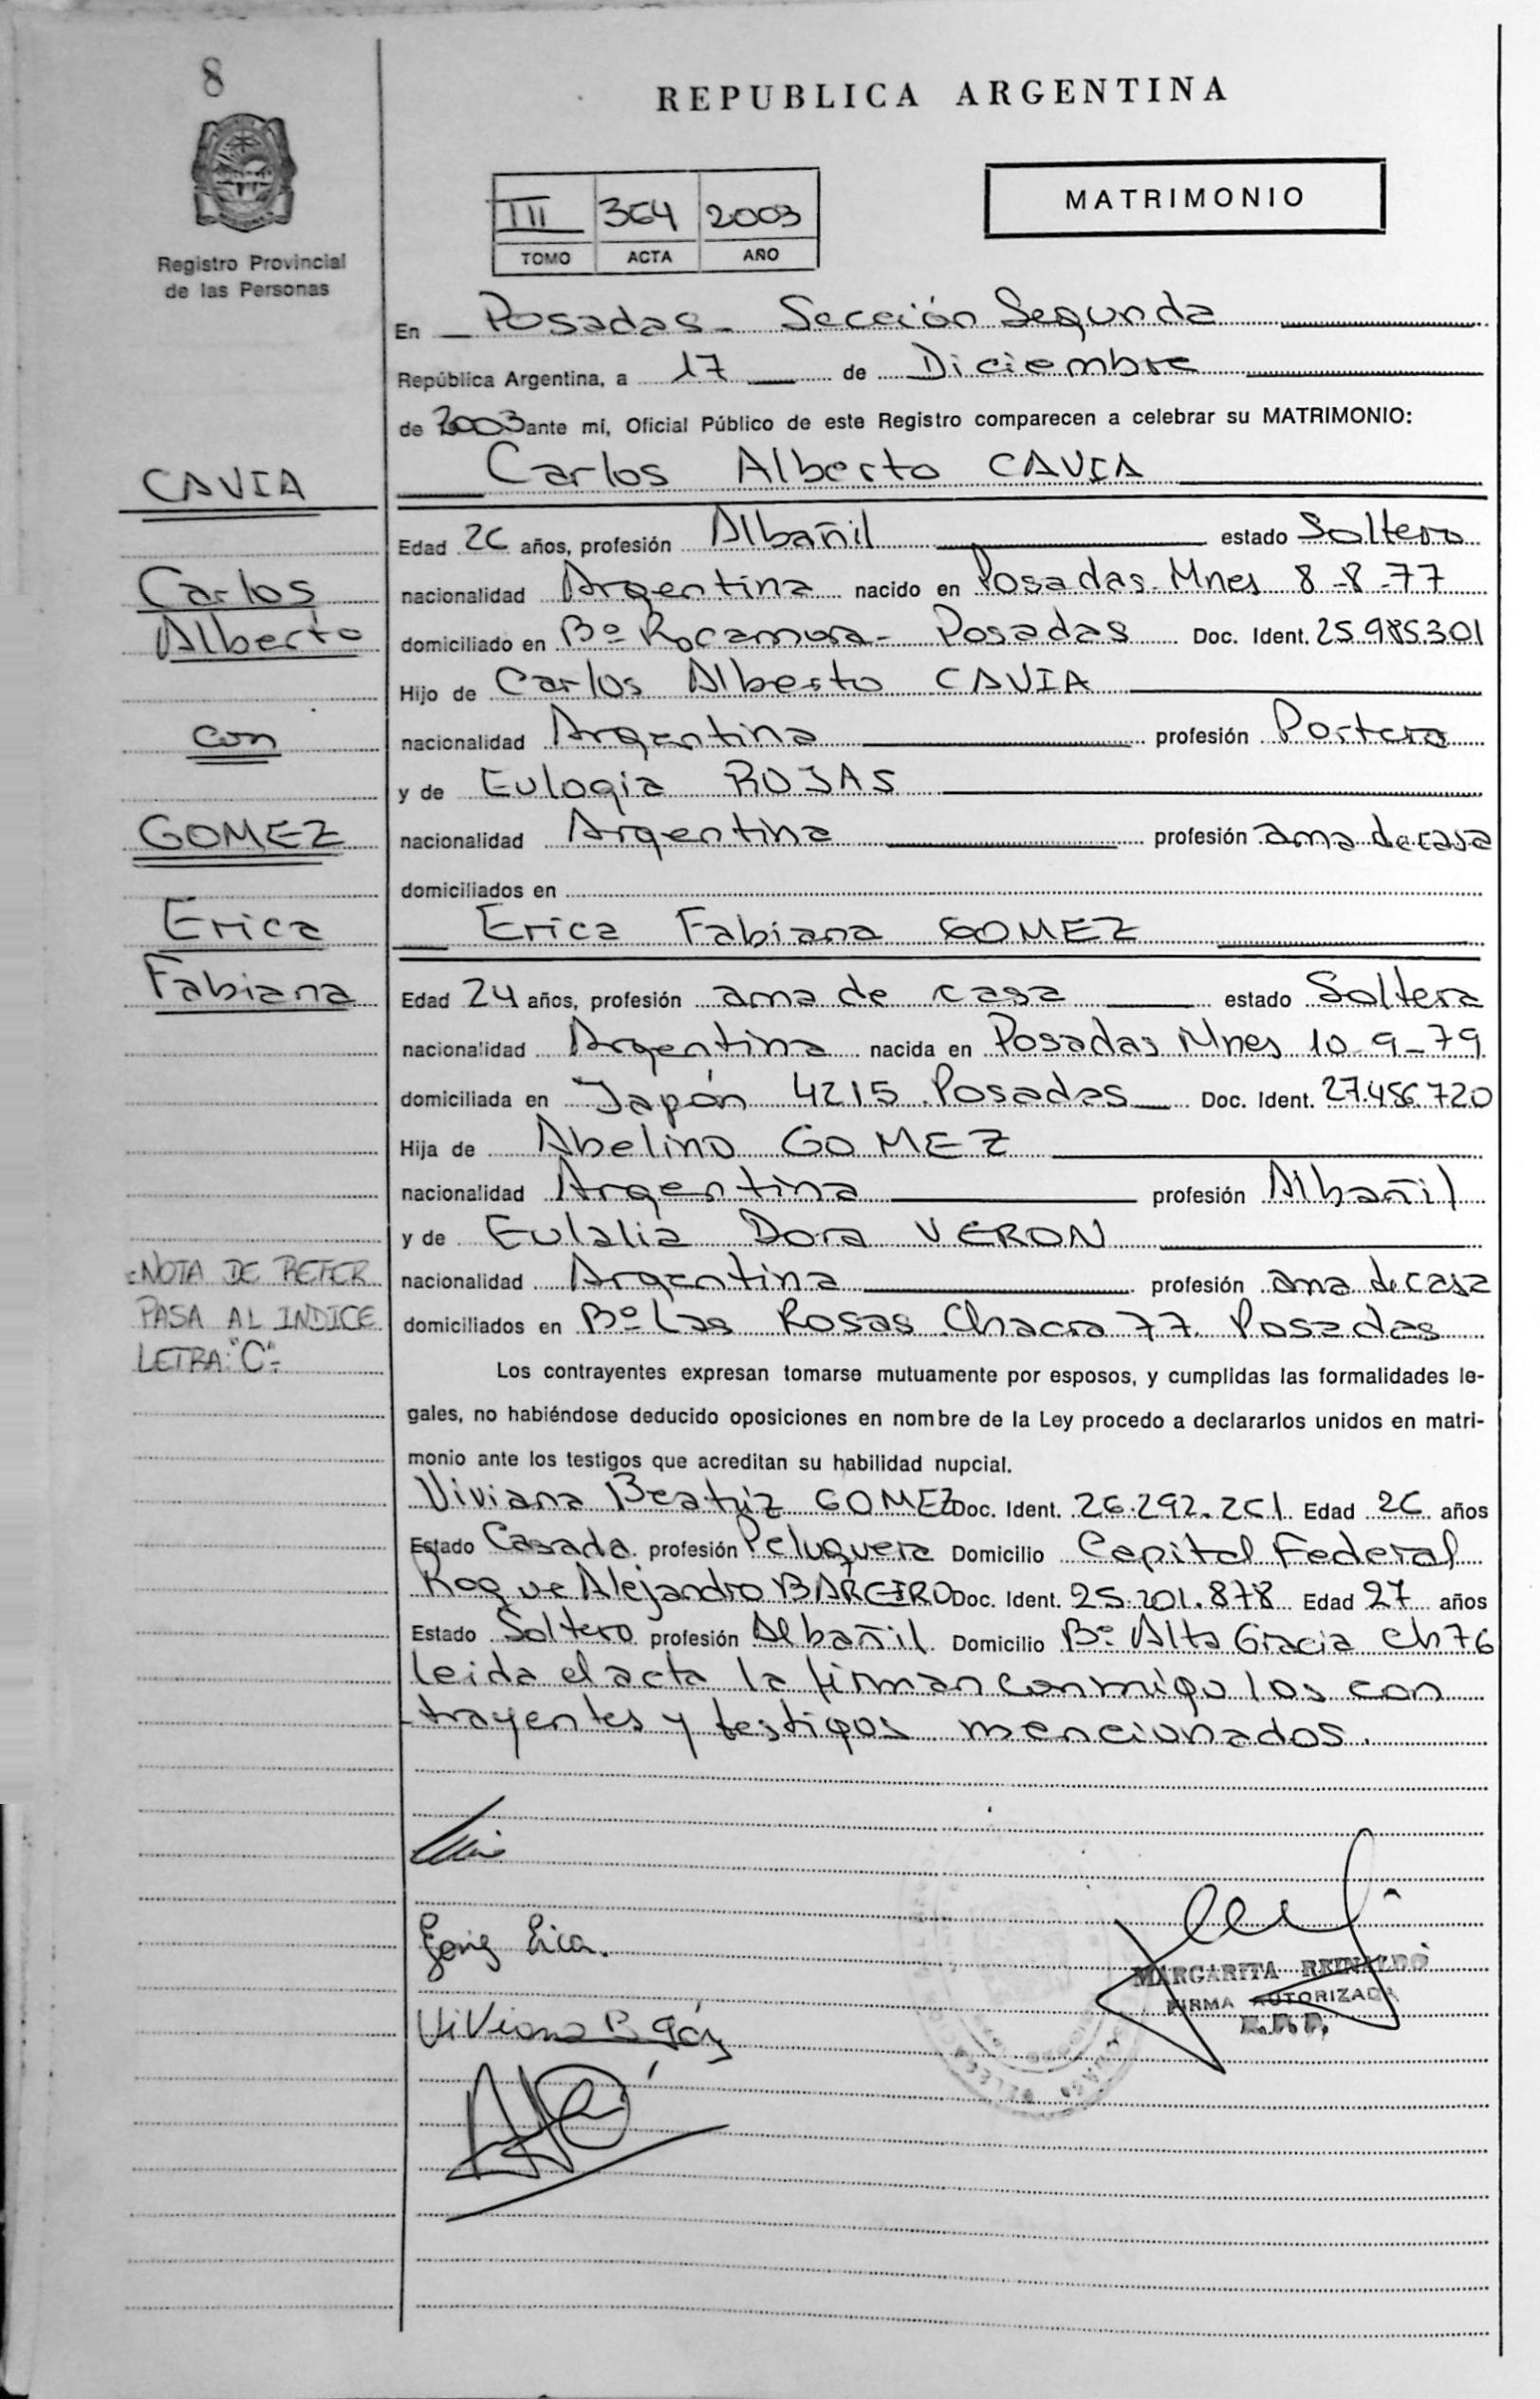 8
REPUBLICA ARGENTINA
MATRIMONIO
III 364 2003
TOMO ACTA AÑO
Registro Provincial
de las Personas
En Posadas - Sección Segunda
República Argentina, a 17 de Diciembre
de 2003 ante mí, Oficial Público de este Registro comparecen a celebrar su MATRIMONIO:
CAVIA
Carlos
Alberto
con
GOMEZ
Erica
Fabiana
Carlos Alberto CAVIA
Edad 26 años, profesión Albañil estado Soltero
nacionalidad Argentina nacido en Posadas - Mnes 8-8-77
domiciliado en Bº Rocamora - Posadas Doc. Ident. 25.985.301
Hijo de Carlos Alberto CAVIA
nacionalidad Argentina profesión Portero
y de Eulogia ROJAS
nacionalidad Argentina profesión ama de casa
domiciliados en
Erica Fabiana GOMEZ
Edad 24 años, profesión ama de casa estado Soltera
nacionalidad Argentina nacida en Posadas Mnes 10-9-79
domiciliada en Japón 4215 Posadas Doc. Ident. 27.486.720
Hija de Abelino GOMEZ
nacionalidad Argentina profesión Albañil
y de Eulalia Dora VERON
nacionalidad Argentina profesión ama de casa
domiciliados en Bº Las Rosas Chacra 77 Posadas
-NOTA DE REFER
PASA AL INDICE
LETRA: "C"-
Los contrayentes expresan tomarse mutuamente por esposos, y cumplidas las formalidades le-
gales, no habiéndose deducido oposiciones en nombre de la Ley procedo a declararlos unidos en matri-
monio ante los testigos que acreditan su habilidad nupcial.
Viviana Beatriz GOMEZ Doc. Ident. 26.292.261 Edad 26 años
Estado Casada profesión Peluquera Domicilio Capital Federal
Roque Alejandro BAREIRO Doc. Ident. 25.201.878 Edad 27 años
Estado Soltero profesión Albañil Domicilio Bº Alta Gracia Ch 76
leida el acta la firman conmigo los con
trayentes y testigos mencionados.
Erica.
Viviana B
MARGARITA REINALDO
FIRMA AUTORIZADA
R.P.P.